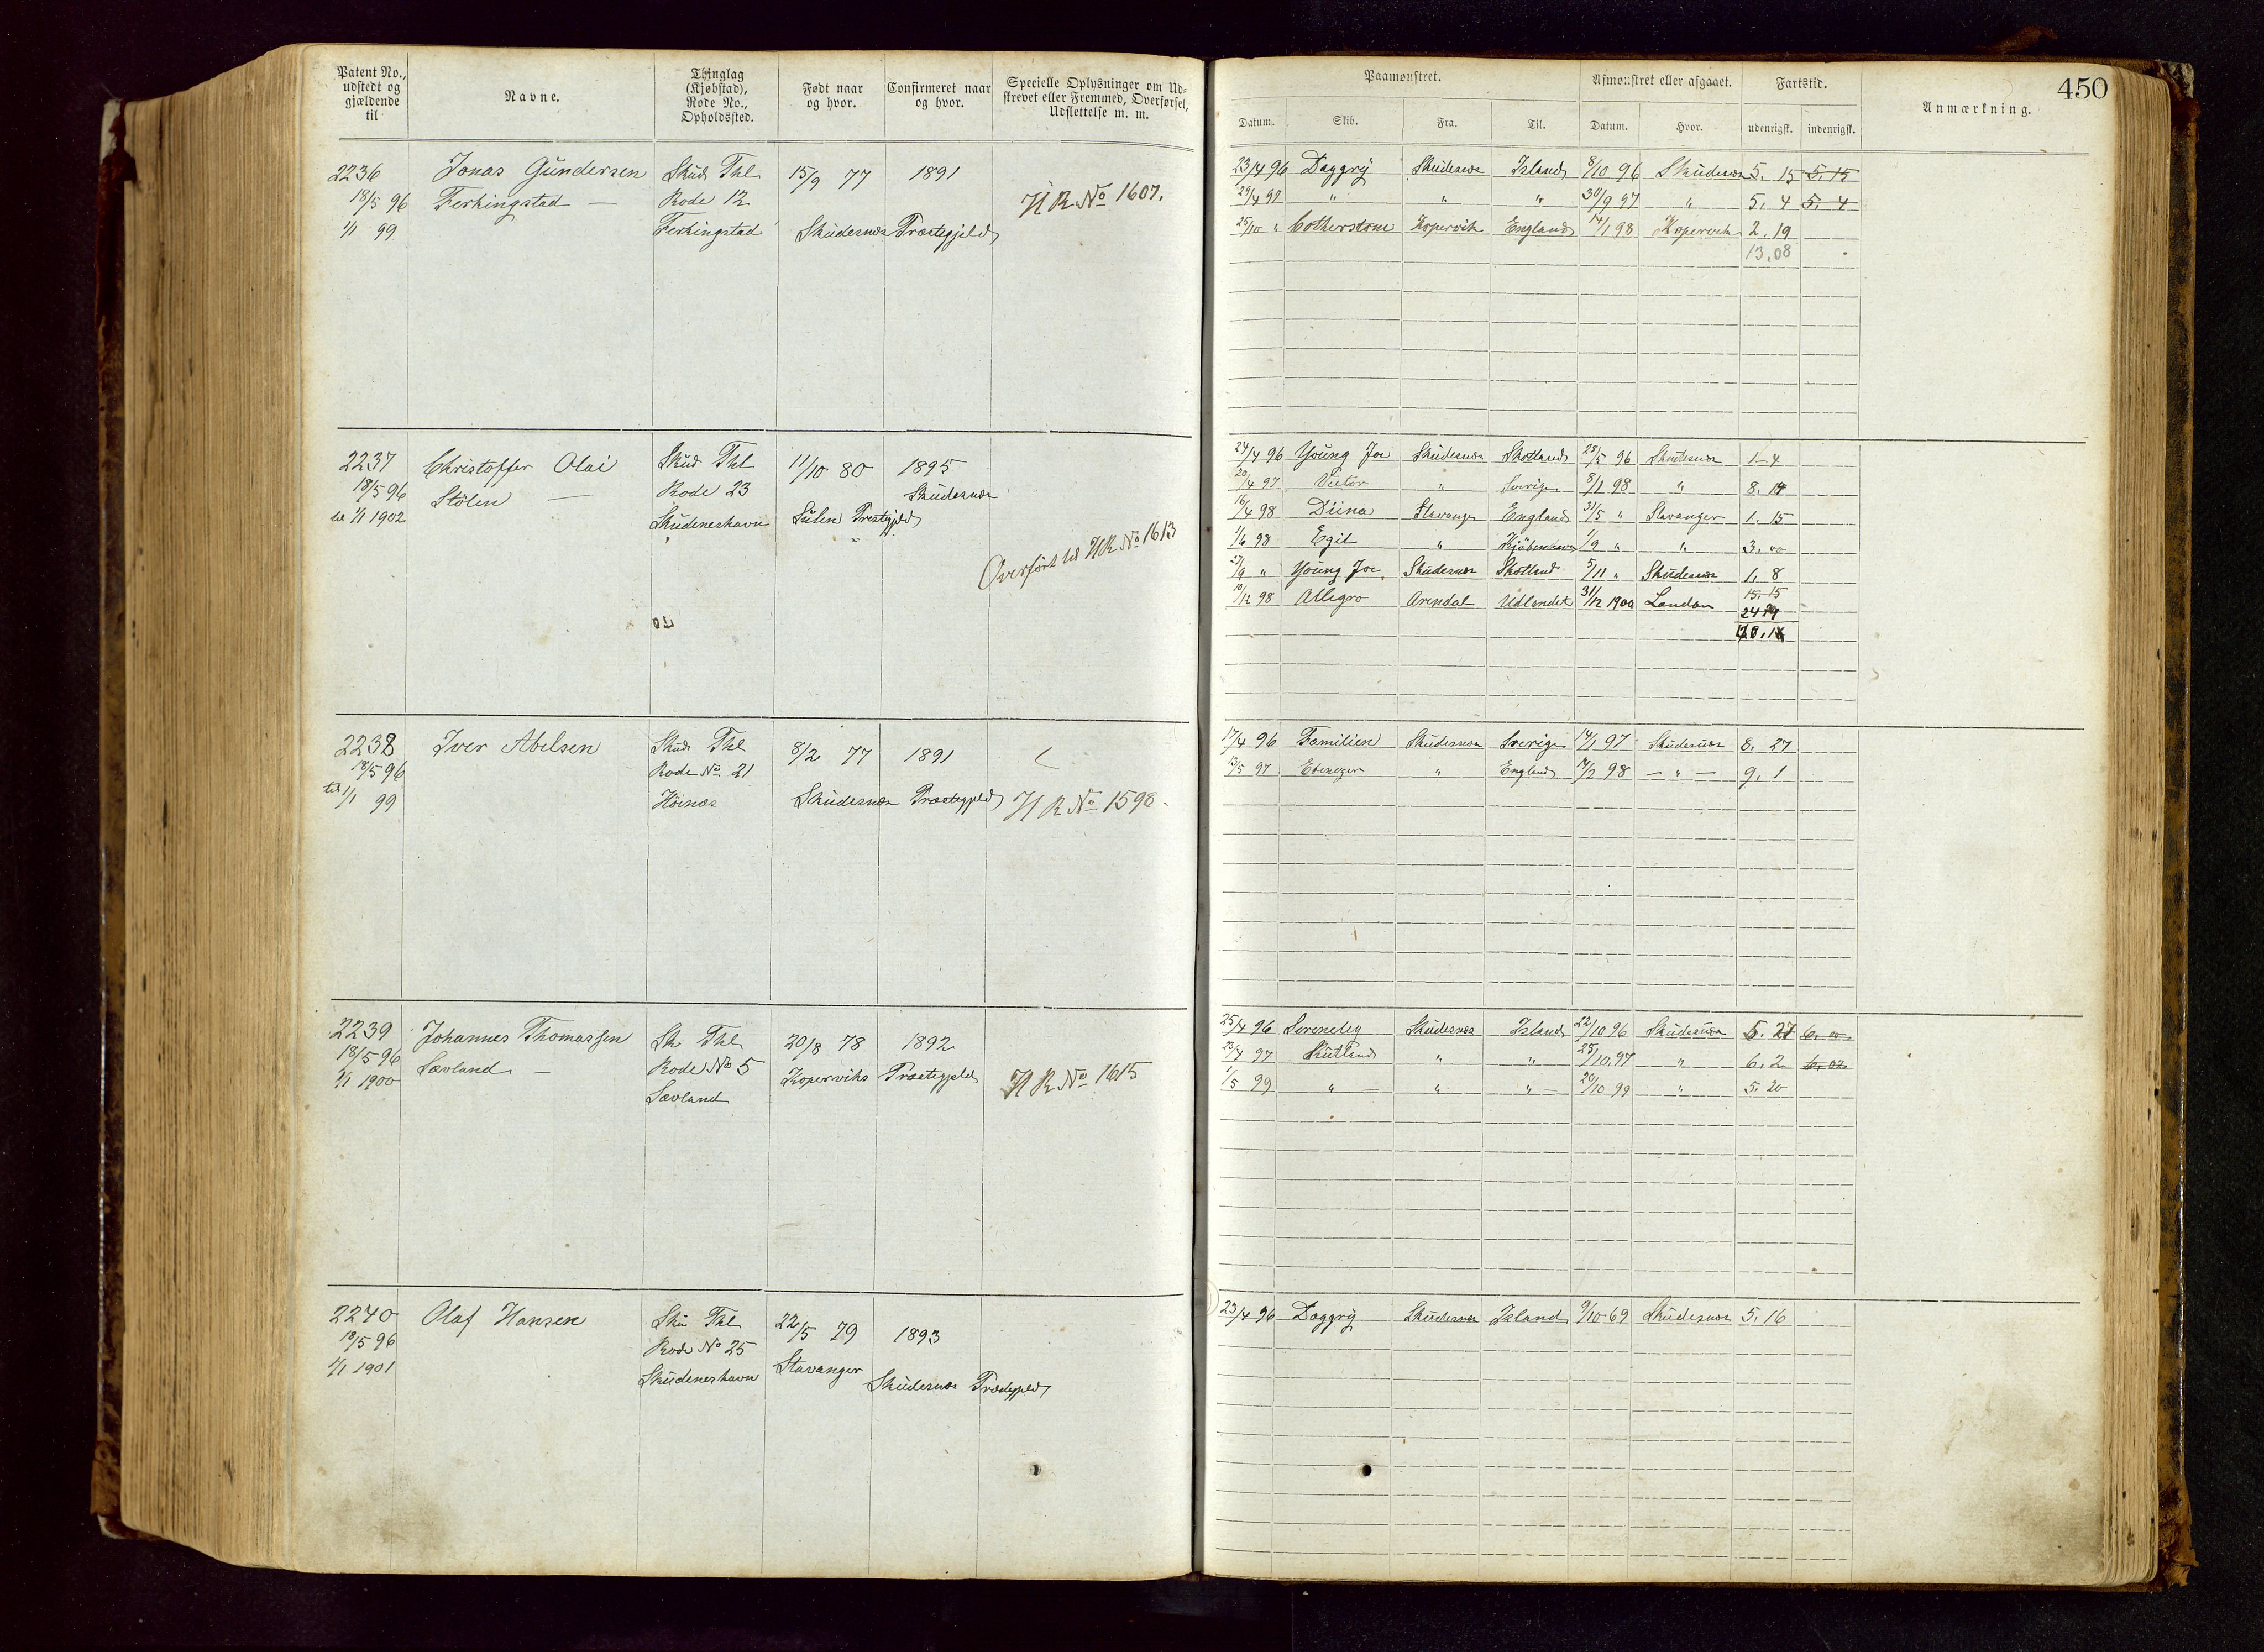 Patent No., udstedt og gjældende til
Navne.
Thinglag (Kjøbstad), Rode No., Opholdssted.
Født naar og hvor.
Confirmeret naar og hvor.
Specielle Oplysninger om Udskrevet eller Fremmed, Overførsel, Udslettelse m. m.
2236 Jonas Gundersen Skud Thl 15/9 77 1891
18/5 96 Ferkingstad — Rode 12 HR No 1607.
1/1 99 Ferkingstad Skudesnes Præstegjeld
2237 Christoffer Olai Skud Thl 11/10 80 1895
18/5 96 Stölen — Rode 23 Skudesnes
til 1/1 1902 Skudeneshavn Præstegjeld
Overført til HR No 1613
2238 Iver Abelsen Skud Thl 8/2 77 1891
18/5 96 Rode No 21
til 1/1 99 Höinæs Skudesnes Præstegjeld HR No 1598.
2239 Johannes Thomassen Sk Thl 20/8 78 1892
18/5 96 Sævland — Rode No 5 Koperviks Præstegjeld HR No 1615
1/1 1900 Sævland
2240 Olaf Hansen Sku Thl 22/5 79 1893
18/5 96 Rode No 25 Stavanger
1/1 1901 Skudeneshavn Skudesnes Præstegjeld
450
Paamønstret. Afmønstret eller afgaaet. Fartstid. Anmærkning.
Datum. Skib. Fra. Til. Datum. Hvor. udenrigsk. indenrigsk.
23/4 96 Daggry Skudesnes Island 8/10 96 Skudesnes 5. 15 5. 15
29/4 97 " " " 30/9 97 " 5. 4 5. 4
25/10 " Cotherstone Kopervik England 14/1 98 Kopervik 2. 19
13.08
24/4 96 Young Joe Skudesnes Skotland 28/5 96 Skudesnes 1–4
20/4 97 Victor " Sverige 8/1 98 " 8.
16/4 98 Diina Stavanger England 31/5 " Stavanger 1. 15
1/6 98 Egil " Kjöbenhavn 1/9 " " 3. 00
27/9 " Young Joe Skudesnes Skotland 5/11 " Skudesnes 1. 8
10/12 98 Allegro Arendal Udlandet 31/12 1900 London 15. 15
17/4 96 Familien Skudesnes Sverige 14/1 97 Skudesnes 8. 27
13/5 97 Ebenezer " England 14/2 98 — " — 9. 1
25/4 96 Skudesnes Island 22/10 96 Skudesnes 5. 27 6. 00
23/4 97 " " 25/10 97 " 6. 2 6. 02
1/5 99 " " " 20/10 99 " 5. 20
23/4 96 Daggry Skudesnes Island 9/10 69 Skudesnes 5. 16